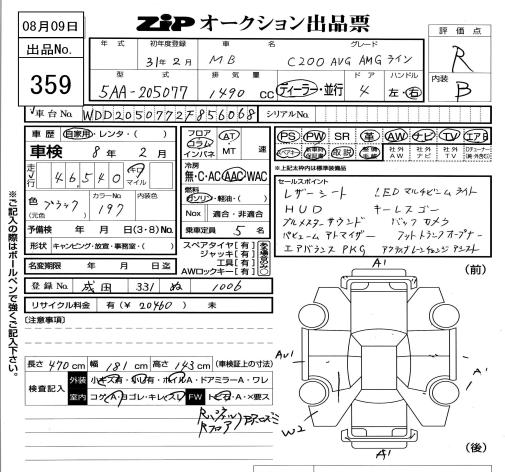 08月09日
ZIP オークション出品票
評価点
R
内装
B
出品No.
359
年式 初年度登録 車名 グレード
31年2月 MB C200 AVG AMGライン
型式 排気量 ドア ハンドル
5AA-205077 1490 cc ディーラー・並行 4 左・右
車台No. WDD2050772F856068 シリアルNo.
車歴 自家用・レンタ・( )
車検 8年2月
走行 46,540 キロ マイル
色 ブラック
(元色)
カラーNo. 197
内装色
予備検 年 月 日(3・8)No.
形状 キャンピング・放宣・事務室・( )
名変期限 年 月 日迄
フロア コラム インパネ AT・MT 速
冷房
無・C・AC AAC WAC
燃料
ガソリン・軽油・( )
Nox 適合・非適合
乗車定員 5名
スペアタイヤ[有]
ジャッキ[有]
工具[有]
AWロックキー[有]
PS PW SR 革 AW ナビ TV エアB
記録簿 取説 社外AW 社外ナビ 社外TV
※上記太枠内は標準装備品
セールスポイント
レザーシート LEDマルチビームライト
HUD キーレスゴー
ブルメスターサウンド バックカメラ
パヒュームアトマイザー フットトランクオープナー
エアバランスPKG
登録No. 成田 331 ぬ 1006
リサイクル料金 有(¥20460) 未
(注意事項)
長さ 470cm 幅 181cm 高さ 143cm (車検証上の寸法)
検査記入 外装 小キズ有・凹有・ホイルA・ドアミラーA・ワレ
室内 コゲA・ヨゴレ・キレ・スレ FW トビ石・A・×要ス
※ご記入の際はボールペンで強くご記入下さい。
(前)
A1
AU1
A1
W2
A1
(後)